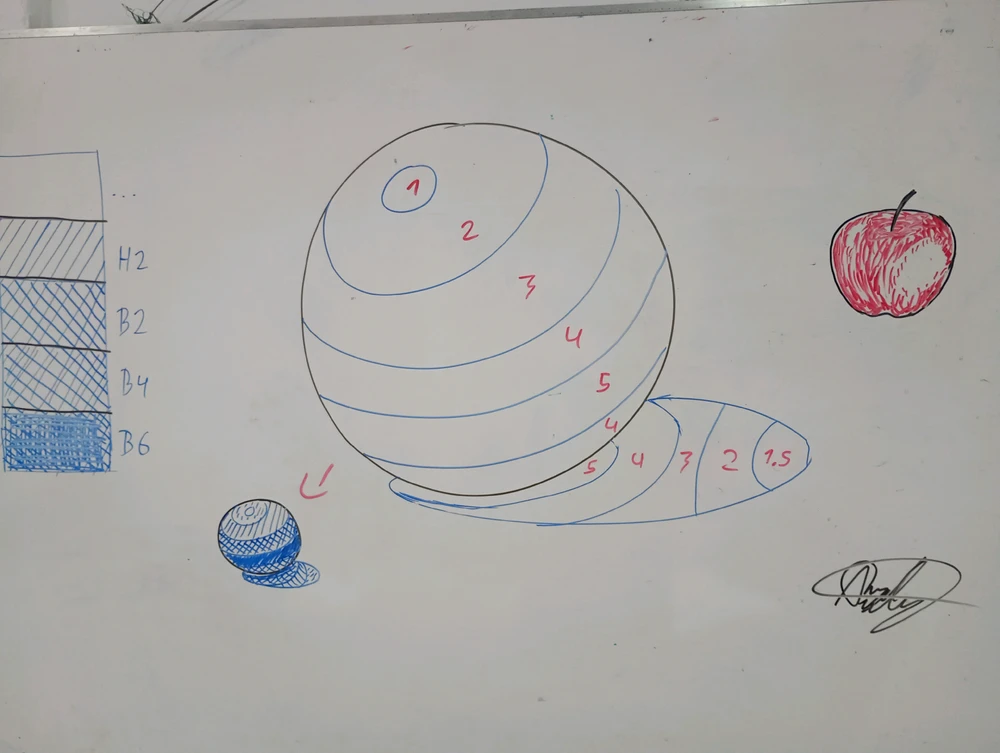 ...
H2
B2
B4
B6
1
2
3
4
5
4
5 4 3 2 1.5